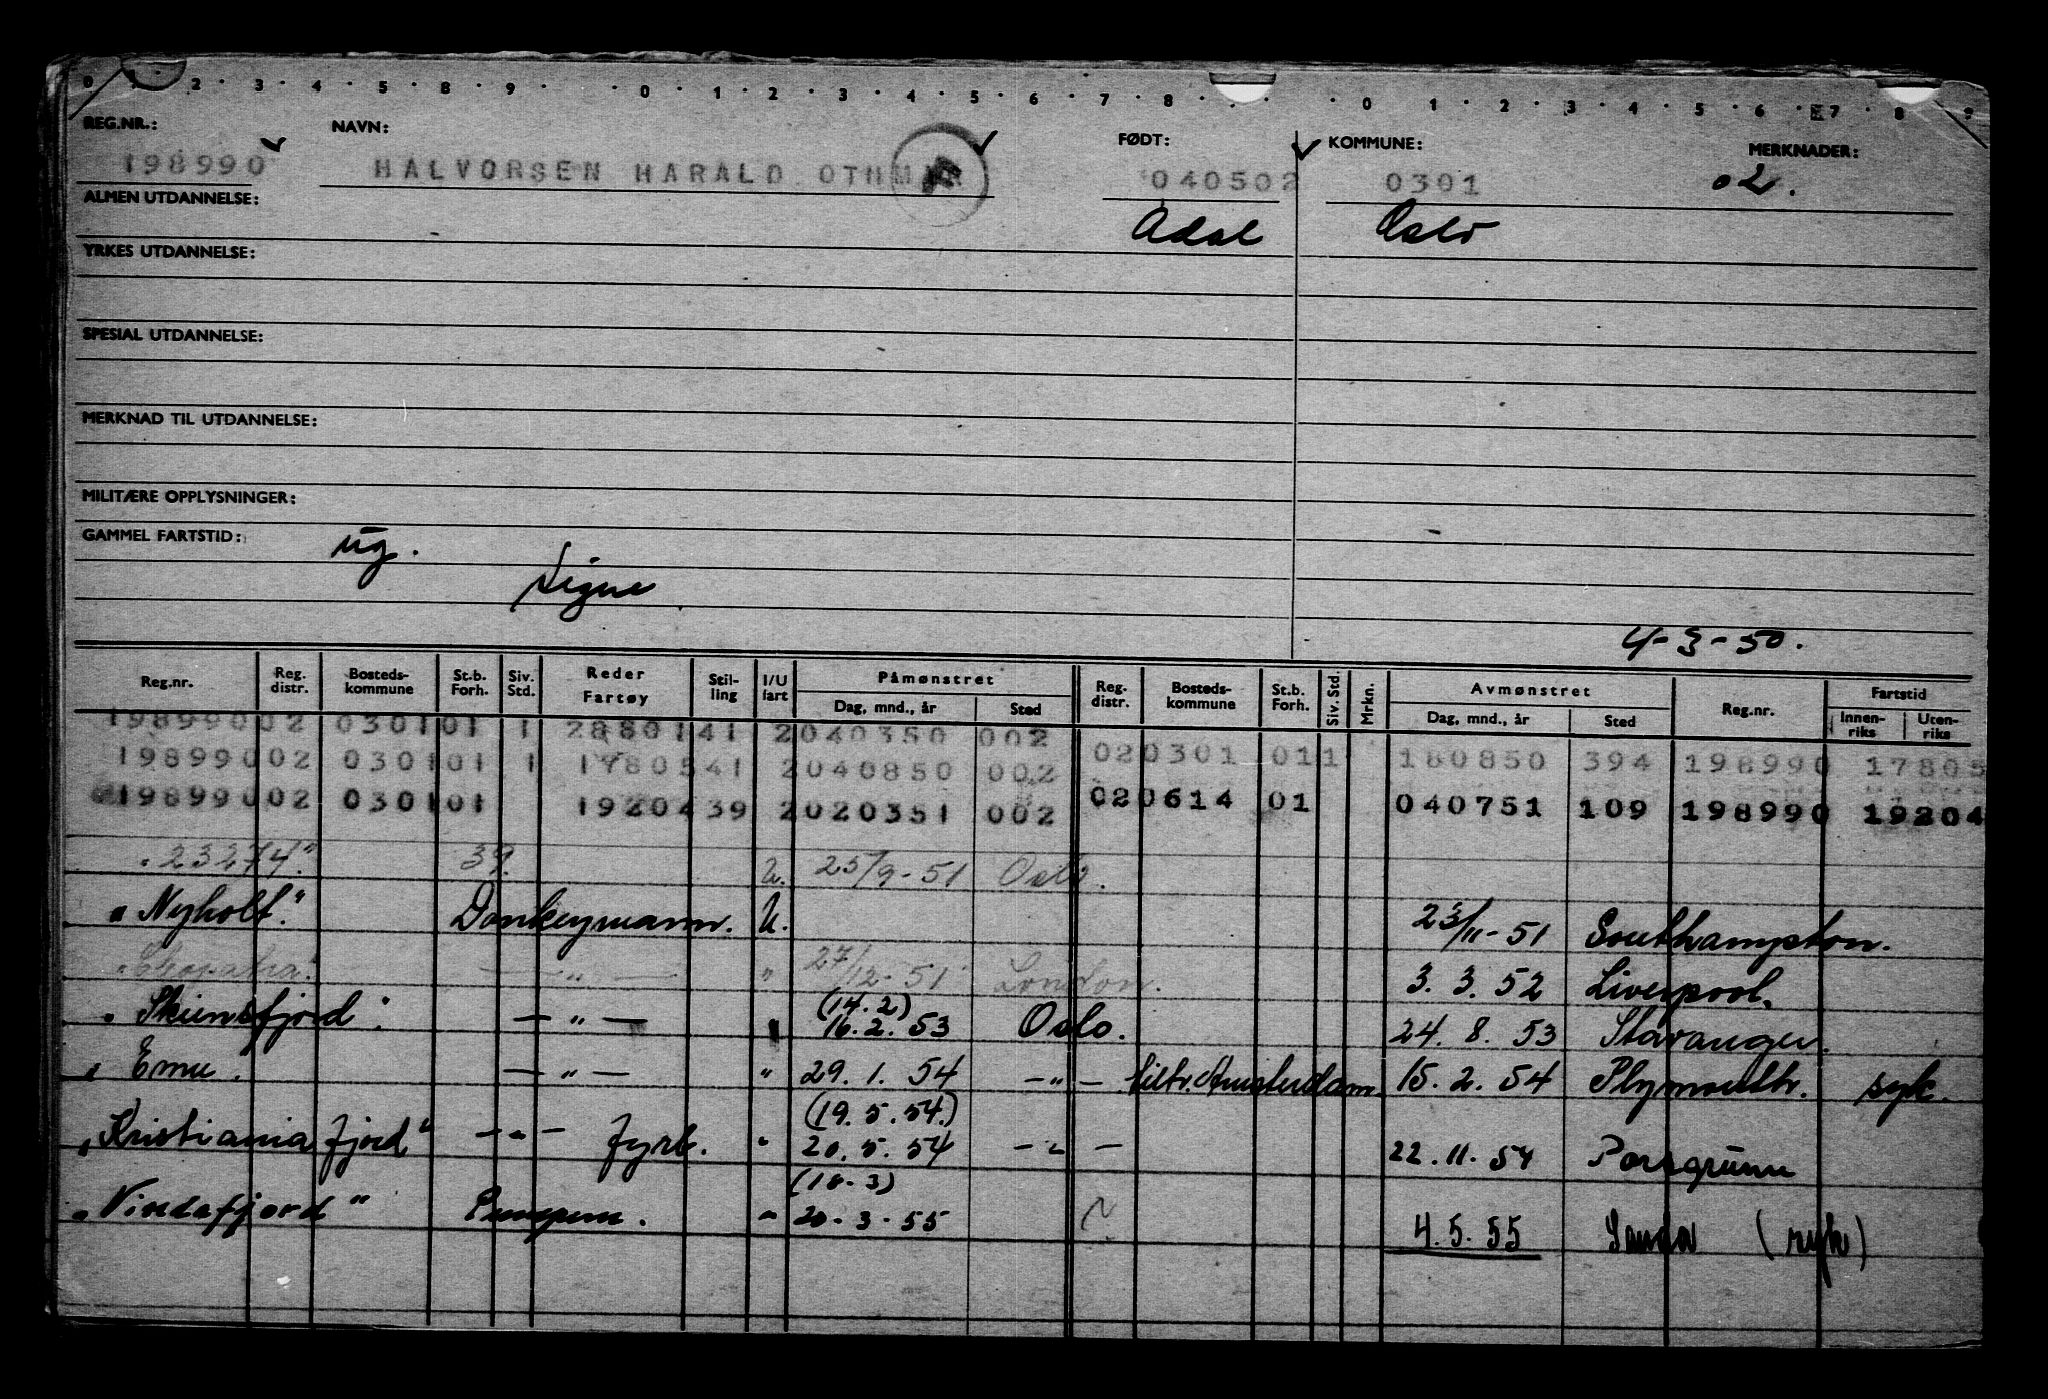 0 1 2 · 3 · 4 · 5 · 8 · 9 · · 0 · 1 · 2 · 3 · 4 · 5 · 6 · 7 · 8 · · · · 0 · 1 · 2 · 3 · 4 · 5 · 6 · 7 · 8 · 9
REG.NR.: NAVN: FØDT: KOMMUNE: MERKNADER:
198990 HALVORSEN HARALD OTHMAR 040502 0301 02.
ALMEN UTDANNELSE: Ådal Oslo
YRKES UTDANNELSE:
SPESIAL UTDANNELSE:
MERKNAD TIL UTDANNELSE:
MILITÆRE OPPLYSNINGER:
GAMMEL FARTSTID: ug.
Signe
4-3-50.
Reg.nr. Reg. distr. Bosteds-kommune St.b. Forh. Siv. Std. Reder Fartøy Stil-ling I/U fart Påmønstret Dag, mnd., år Sted Reg. distr. Bosteds-kommune St.b. Forh. Siv. Std. Mrkn. Avmønstret Dag, mnd., år Sted Reg.nr. Fartstid Innen-riks Uten-riks
198990 02 0301 01 1 28801 41 2 040350 002
198990 02 0301 01 1 17805 41 2 040850 002 02 0301 01 1 180850 394 198990 17805
198990 02 0301 01 19204 39 2 020351 002 02 0614 01 040751 109 198990 19204
"23274." 39. U. 25/9-51 Oslo.
"Nyholt." Donkeymann. U. 23/11-51 Southampton.
— " — " 27/12-51 London. 3. 3. 52 Liverpool.
"Skiensfjord". — " — (14.2) 16. 2. 53 Oslo. 24. 8. 53 Stavanger.
" Emu. — " — " 29. 1. 54 — " — Amsterdam. 15. 2. 54 Plymouth. syk.
"Kristianiafjord" — " — fyrb. " (19. 5. 54.) 20. 5. 54 — " — 22. 11. 54 Porsgrunn
"Vindafjord" Pumpem. " (18-3) 20-3-55 4. 5. 55 (syk)